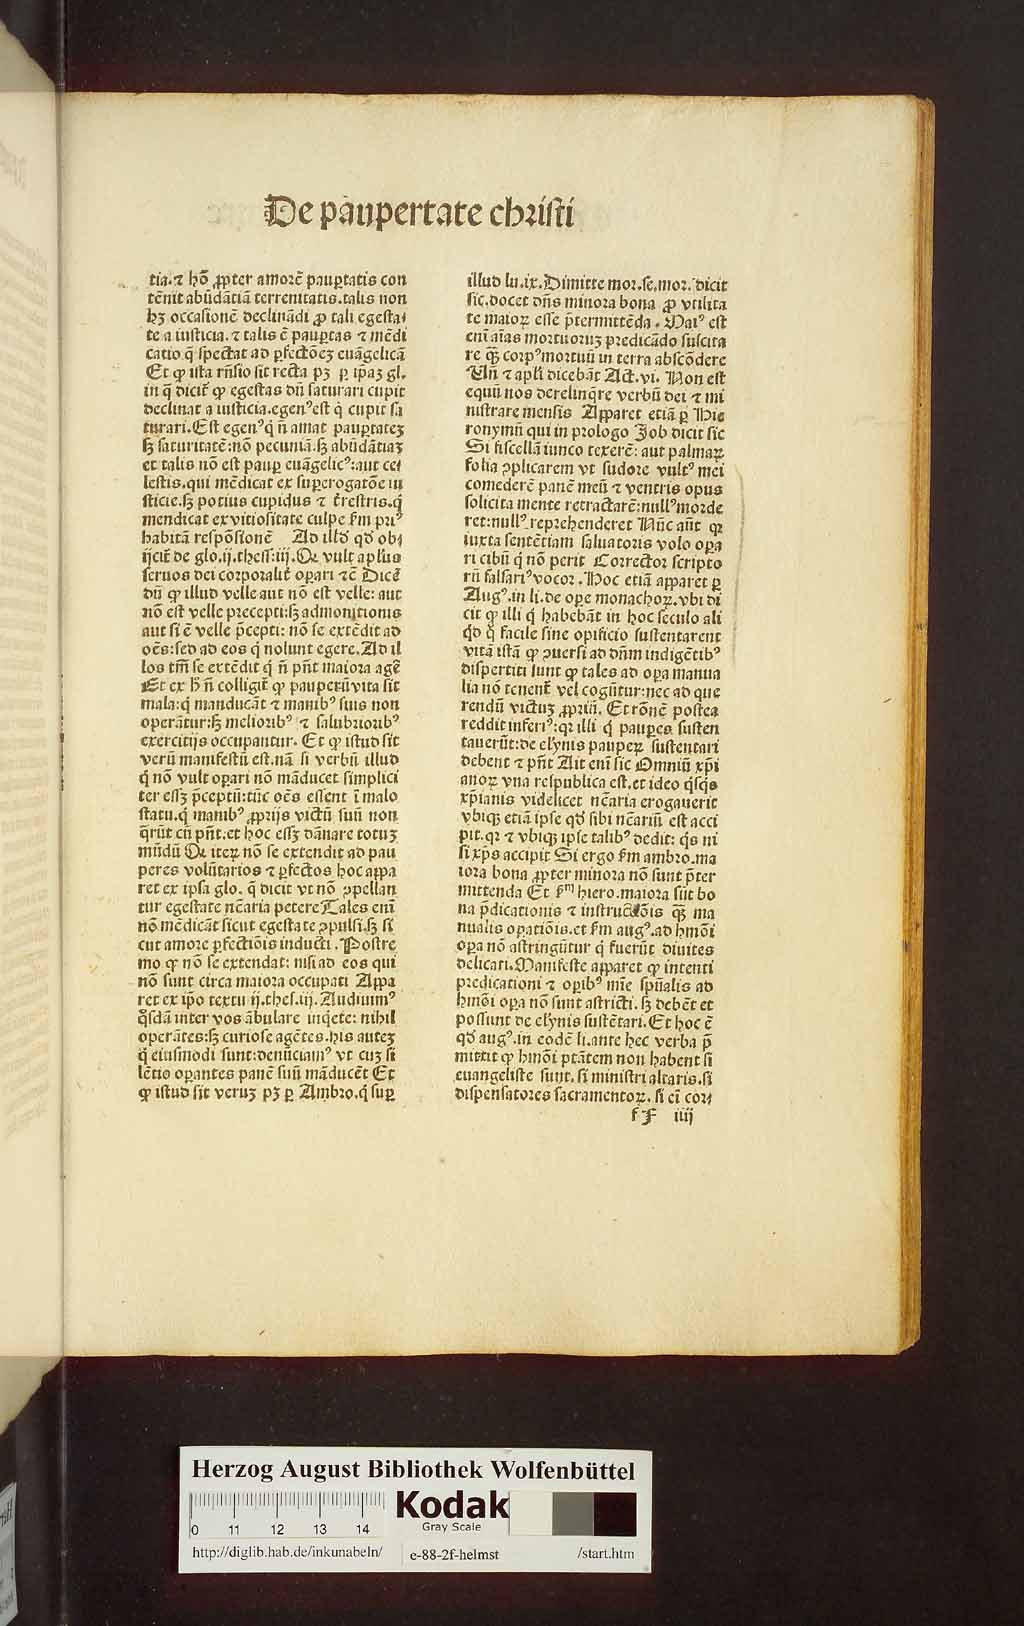 De paupertate christi
tia.⁊ hõ ꝓpter amorẽ paup̱tatis con
tẽnit abũdãtiã terrenitatis.talis non
hꝫ occasionẽ declinãdi ꝓ tali egesta⸗
te a iusticia.⁊ talis ẽ paup̱tas ⁊ mẽdi
catio q̃ spectat ad p̱fectõeꝫ euãgelicã
Et ꝙ ista rñsio sit recta pꝫ p̱ ip̃aꝫ gl.
in q̃ dicit᷑ ꝙ egestas dũ saturari cupit
declinat a iusticia.egenꝰest q̇ cupit sa
turari.Est egenꝰq̇ ñ amat paup̱tateꝫ
sꝫ saturitatẽ:nõ pecuniã.sꝫ abũdãtiaꝫ
et talis nõ est paup̱ euãgelicꝰ:aut ce⸗
lestis.qui mẽdicat ex sup̱erogatõe iu
sticie.sꝫ potius cupidus ⁊ t̃restris.q̇
mendicat ex vitiositate culpe ẜm priꝰ
habitã respõsionẽ Ad illđ qđ ob⸗
ijcit᷑ de glo.ij.thess:iij.Qꝛ vult apl̃us
seruos dei corporalit᷑ op̱ari ⁊cẽ Dicẽ
dũ ꝙ illud velle aut nõ est velle: aut
nõ est velle precepti:sꝫ admonitionis
aut si ẽ velle p̃cepti: nõ se extẽdit ad
oẽs:sed ad eos q̇ nolunt egere.Ad il
los tm̃ se extẽdit q̇ ñ pñt maiora agẽ
Et ex ħ ñ colligit᷑ ꝙ pauperũ vita sit
mala:q̇ manducãt ⁊ manibꝰ suis non
operãtur:sꝫ melioribꝰ ⁊ salubrioribꝰ
exercitijs occupantur. Et ꝙ istud sit
verũ manifestũ est.nã si verbũ illud
q̇ nõ vult op̱ari nõ mãducet simplici
ter essꝫ p̃ceptũ:tũc oẽs essent ĩ malo
statu.q̇ manibꝰ ꝓprijs victũ suũ non
q̃rũt cũ pñt.et hoc essꝫ dãnare totuꝫ
mũdũ Qꝛ iteꝝ nõ se extendit ad pau
peres volũtarios ⁊ p̱fectos hoc appa
ret ex ipsa glo. q̃ dicit vt nõ ꝯpellan
tur egestate nc̃aria petere Tales em̃
nõ mẽdicãt sicut egestate ꝯpulsi.sꝫ si
cut amore p̱fectiõis inducti. Postre
mo ꝙ nõ se extendat: nisi ad eos qui
nõ sunt circa maiora occupati Appa
ret ex ip̃o textu ij.thes.iij.Audiuimꝰ
q̇sdã inter vos ãbulare inq̇ete: nihil
operãtes:sꝫ curiose agẽtes.his auteꝫ
q̇ eiusmodi sunt:denũciamꝰ vt cuꝫ si
lẽtio op̱antes panẽ suũ mãducẽt Et
ꝙ istud sit veruꝫ pꝫ p̱ Ambro.q̇ sup̱
illud lu.ix.Dimitte mor.se.mor. dicit
sic.docet dñs minora bona ꝓ vtilita
te maioꝝ esse p̃termittẽda. Maiꝰ est
enĩ aĩas mortuoruꝫ predicãdo suscita
re qꝫ̃ corpꝰmortuũ in terra abscõdere
Vñ ⁊ apl̃i dicebãt Act.vi. Non est
equũ nos derelinq̃re verbũ dei ⁊ mi
nistrare mensis Apparet etiã p̱ Hie
ronymũ qui in prologo Job dicit sic
Si fiscellã iunco texerẽ: aut palmaꝝ
folia ꝯplicarem vt sudore vultꝰ mei
comederẽ panẽ meũ ⁊ ventris opus
solicita mente retractarẽ:nullꝰmorde
ret:nullꝰ reprehenderet Nũc aũt qꝛ
iuxta sentẽtiam saluatoris volo op̱a
ri cibũ q̇ nõ perit Corrector scripto
rũ falsariꝰvocor. Hoc etiã apparet p̱
Augꝰ.in li.de op̱e monachoꝝ.vbi di
cit ꝙ illi q̇ habebãt in hoc seculo ali
q̇d q̊ facile sine opificio sustentarent
vitã istã ꝙ ꝯuersi ad dñm indigẽtibꝰ
dispertiti sunt ꝙ tales ad op̱a manua
lia nõ tenent᷑ vel cogũtur:nec ad que
rendũ victuꝫ ꝓpriũ. Et rõnẽ postea
reddit inferiꝰ:qꝛ illi q̇ paup̱es susten
tauerũt:de elynis paupeꝝ sustentari
debent ⁊ pñt Ait enĩ sic Omniũ xp̃i
anoꝝ vna respublica est.et ideo q̇sq̇s
xp̃ianis videlicet nc̃aria erogauerit
vbiqꝫ etiã ipse qđ sibi nc̃ariũ est acci
pit.qꝛ ⁊ vbiqꝫ ipse talibꝰ dedit: q̇s ni
si xp̃s accipit Si ergo ẜm ambro.ma
iora bona ꝓpter minora nõ sunt p̃ter
mittenda Et ẜm hiero.maiora sũt bo
na p̃dicationis ⁊ instructiõis qꝫ̃ ma
nualis op̱atiõis.et ẜm augꝰ.ad hmõi
op̱a nõ astringũtur q̇ fuerũt diuites
delicati.Manifeste apparet ꝙ intenti
predicationi ⁊ op̱ibꝰ mĩe spũalis ad
hmõi op̱a nõ sunt astricti.sꝫ debẽt et
possunt de elynis sustẽtari.Et hoc ẽ
qđ augꝰ.in eodẽ li.ante hec verba p̃
mittit ꝙ hmõi ptãtem non habent si
euangeliste sunt.si ministri altaris.si
dispensatores sacramentoꝝ. si eĩ cor⸗
f F iiij
Herzog August Bibliothek Wolfenbüttel
Kodak
Gray Scale
0 11 12 13 14
http://diglib.hab.de/inkunabeln/ e-88-2f-helmst /start.htm